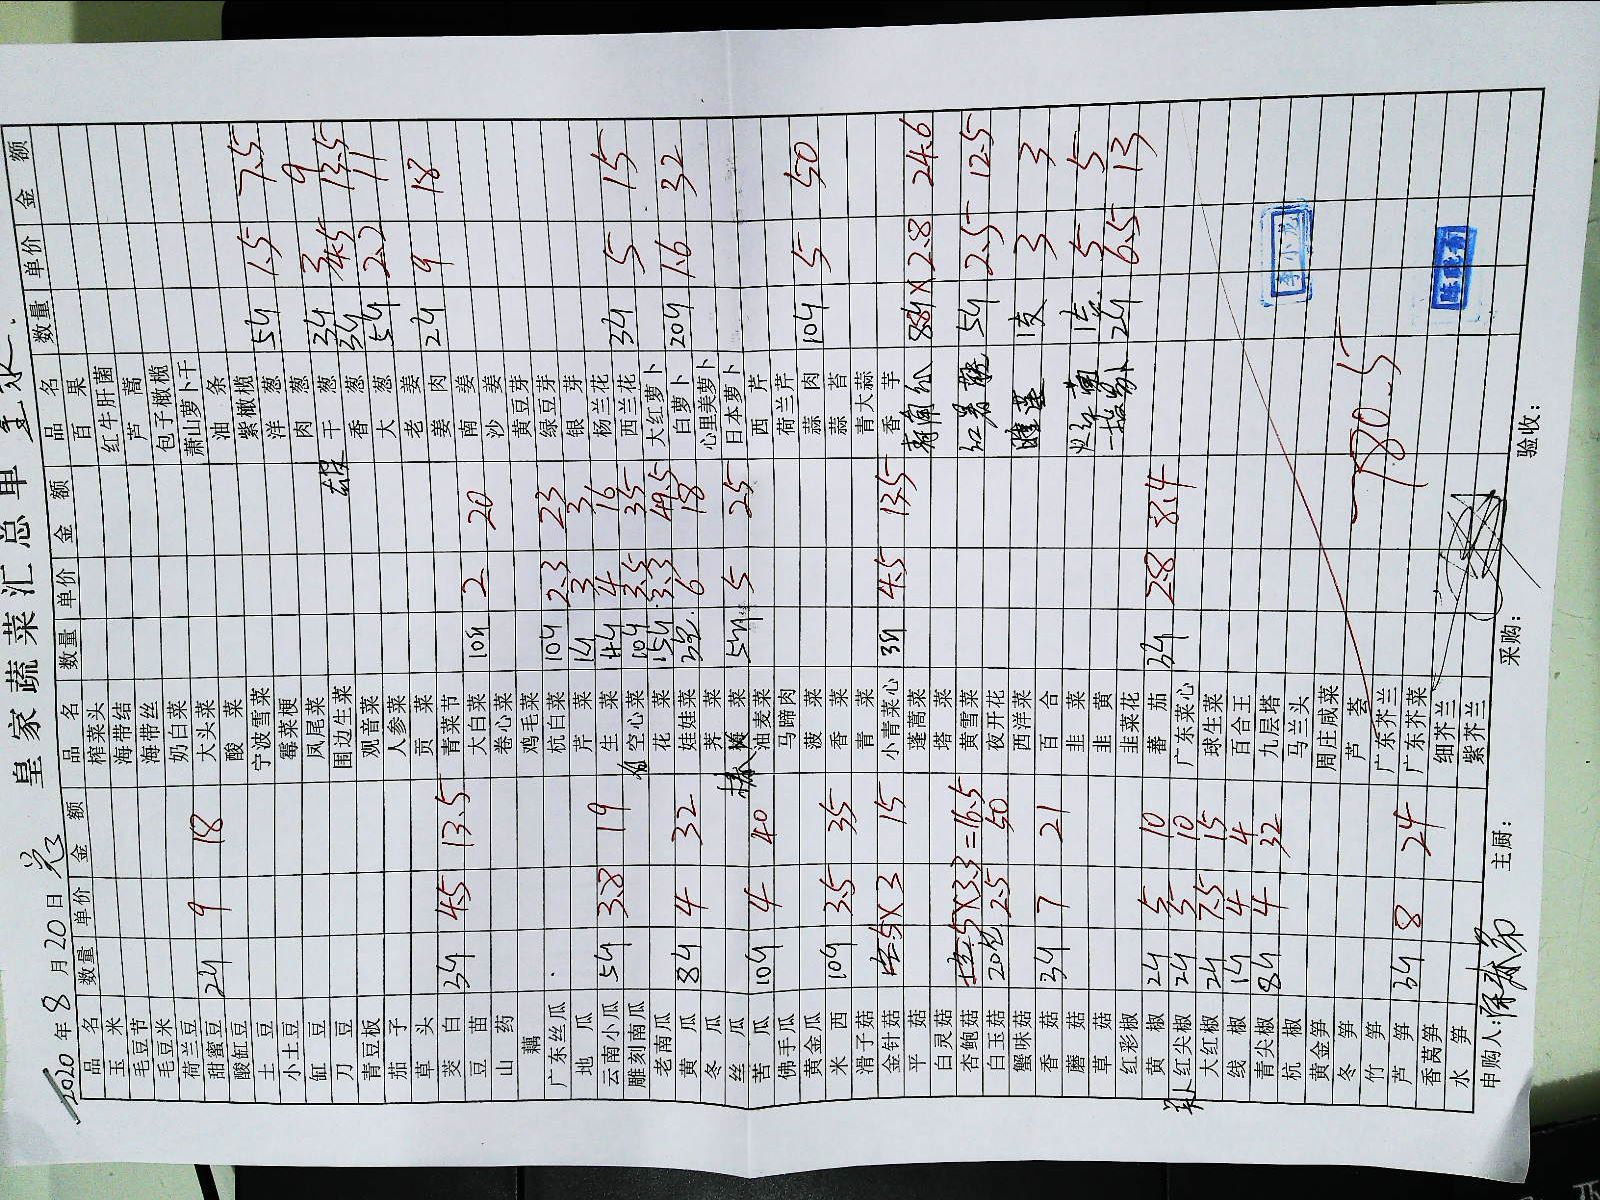 皇家蔬菜汇总单
2020年8月20日
品名 数量 单价 金额 品名 数量 单价 金额 品名 数量 单价 金额
玉米 榨菜头 百果
毛豆节 海带结 红牛肝菌
毛豆米 海带丝 芦蒿
荷兰豆 奶白菜 包子橄榄
甜蜜豆 2斤 9 18 大头菜 萧山萝卜干
酸缸豆 酸菜 油条
土豆 宁波雪菜 紫橄榄
小土豆 霉菜梗 洋葱 5斤 1.5 7.5
缸豆 凤尾菜 肉葱
刀豆 围边生菜 干葱 3斤 3 9
青豆板 观音菜 香葱 3斤 4.5 13.5
茄子 人参菜 大葱 5斤 2.2 11
草头 贡菜 老姜
茭白 3斤 4.5 13.5 青菜节 姜肉 2斤 9 18
豆苗 大白菜 10斤 2 20 南姜
山药 卷心菜 沙姜
藕 鸡毛菜 黄豆芽
广东丝瓜 杭白菜 10斤 2.3 23 绿豆芽
地瓜 芹菜 1斤 3 3 银芽
云南小瓜 5斤 3.8 19 生菜 4斤 4 16 杨兰花
雕刻南瓜 空心菜 10斤 3.5 35 西兰花 3斤 5 15
老南瓜 花菜 15斤 3.3 49.5 大红萝卜
黄瓜 8斤 4 32 娃娃菜 3包 6 18 白萝卜 20斤 1.6 32
冬瓜 荠菜 心里美萝卜
丝瓜 菜 5斤 5 25 日本萝卜
苦瓜 10斤 4 40 油麦菜 西芹
佛手瓜 马蹄肉 荷兰芹
黄金瓜 菠菜 蒜肉 10斤 5 50
米西 10斤 3.5 35 香菜 蒜苔
滑子菇 青菜 青大蒜
金针菇 5×3 15 小青菜心 3斤 4.5 13.5 香芋
平菇 蓬蒿菜 ×2.8 24.6
白灵菇 塔菜
杏鲍菇 5×3.3=16.5 黄雪菜 红薯 5斤 2.5 12.5
白玉菇 20包 2.5 50 夜开花
蟹味菇 西洋菜 莲 1支 3 3
香菇 3斤 7 21 百合
蘑菇 韭菜 5 5
草菇 韭黄 2斤 6.5 13
红彩椒 韭菜花
黄椒 2斤 5 10 蕃茄 3斤 2.8 8.4
红尖椒 2斤 5 10 广东菜心
大红椒 2斤 7.5 15 球生菜
线椒 1斤 4 4 百合王
青尖椒 8斤 4 32 九层塔
杭椒 马兰头
黄金笋 周庄咸菜
冬笋 芦荟
竹笋 广东芥兰 780.5
芦笋 3斤 8 24 广东芥菜
香莴笋 细芥兰
水笋 紫芥兰
李小龙
申购人: 主厨: 采购: 验收: